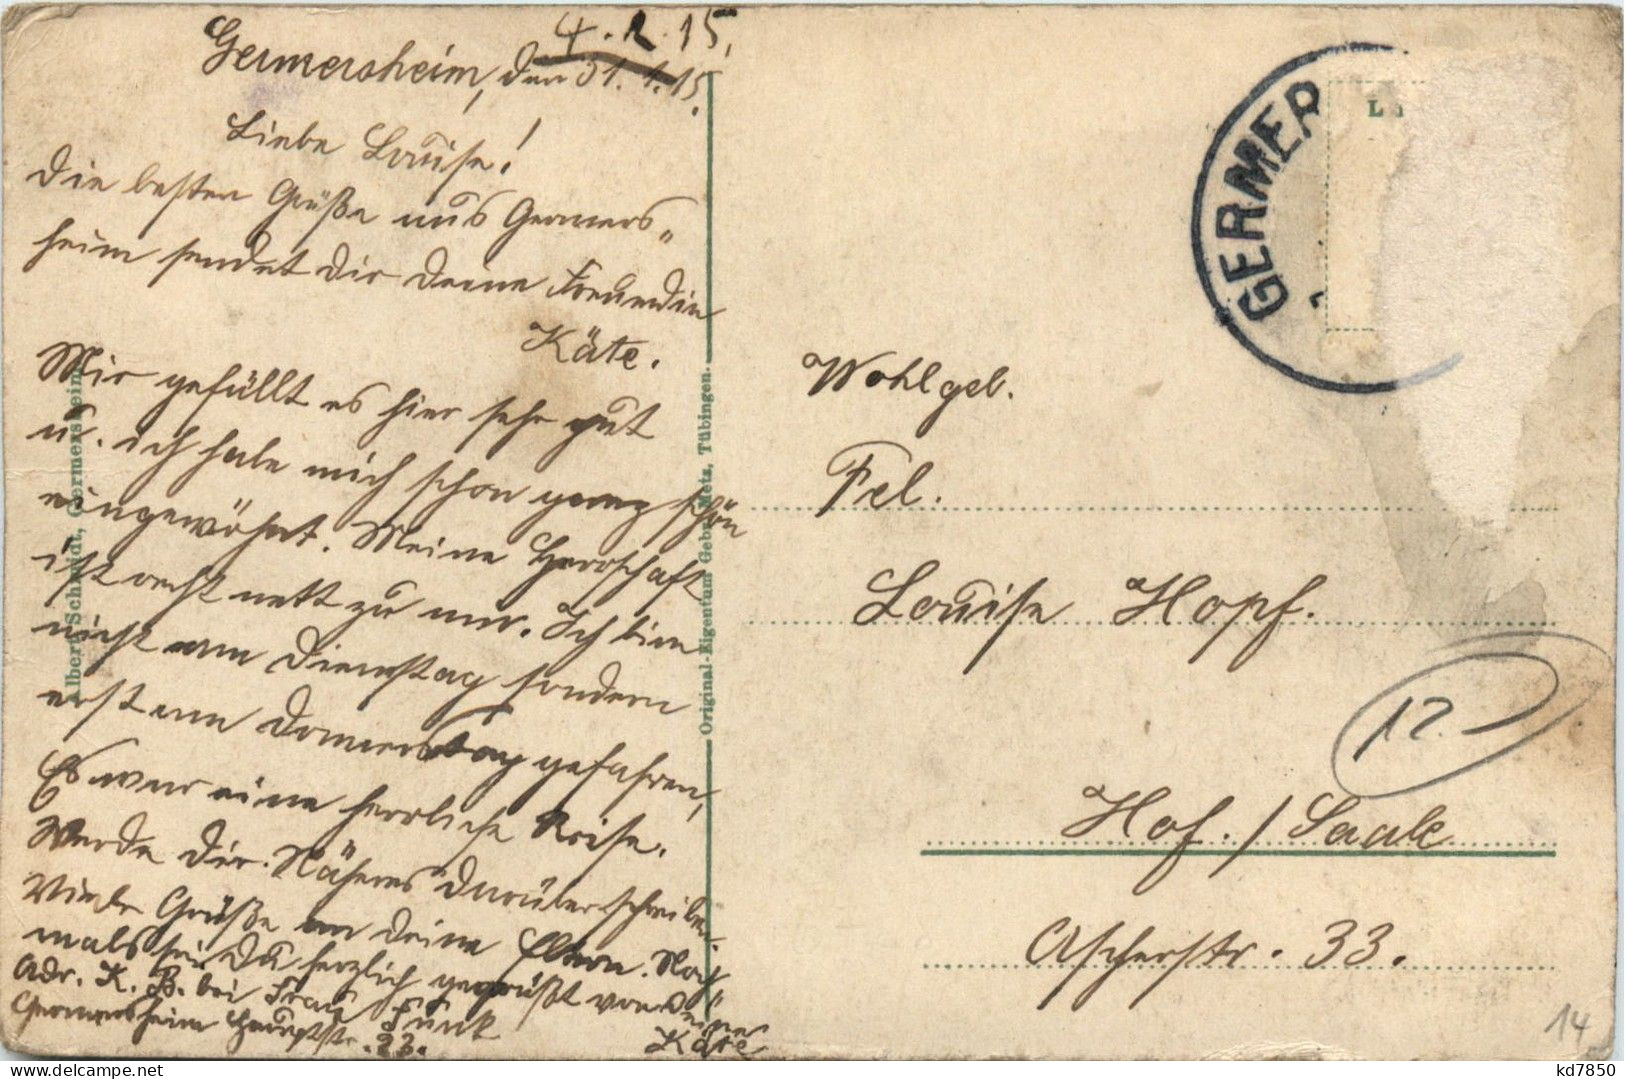 4.2.15.
Germersheim, den 31.1.15.
Liebe Louise!
Die besten Grüße aus Germers„
heim sendet Dir Deine Freundin
Käte.
Mir gefällt es hier sehr gut
u. ich habe mich schon ganz schön
eingewöhnt. Meine Herrschaft
ist recht nett zu mir. Ich bin
nicht am Dienstag sondern
erst am Donnerstag gefahren,
Es war eine herrliche Reise.
Werde Dir Näheres darüber schreiben.
Viele Grüße an Deine Eltern. Noch„
mals sei Du herzlich gegrüßt von Deiner
Käte
Adr. K. B. bei Frau Funk
Germersheim Hauptstr. 23.
Albert Schmidt, Germersheim.
Original-Eigentum Gebr. Metz, Tübingen.
GERMER
Wohlgeb.
Frl.
Louise Hopf.
Hof./Saale
Ascherstr. 33.
12.-
14
kd7850